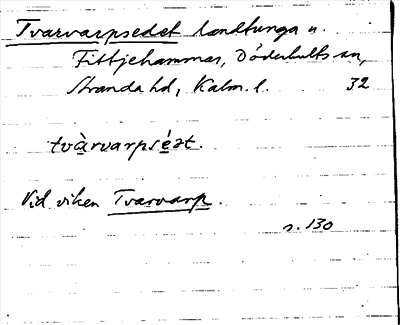 Tvarvarpsedet landtunga u.
Fittjehammar, Döderhults sn,
Stranda hd, Kalm. l. 32
tvàrvarpséət.
Vid viken Tvarvarp.
s. 130